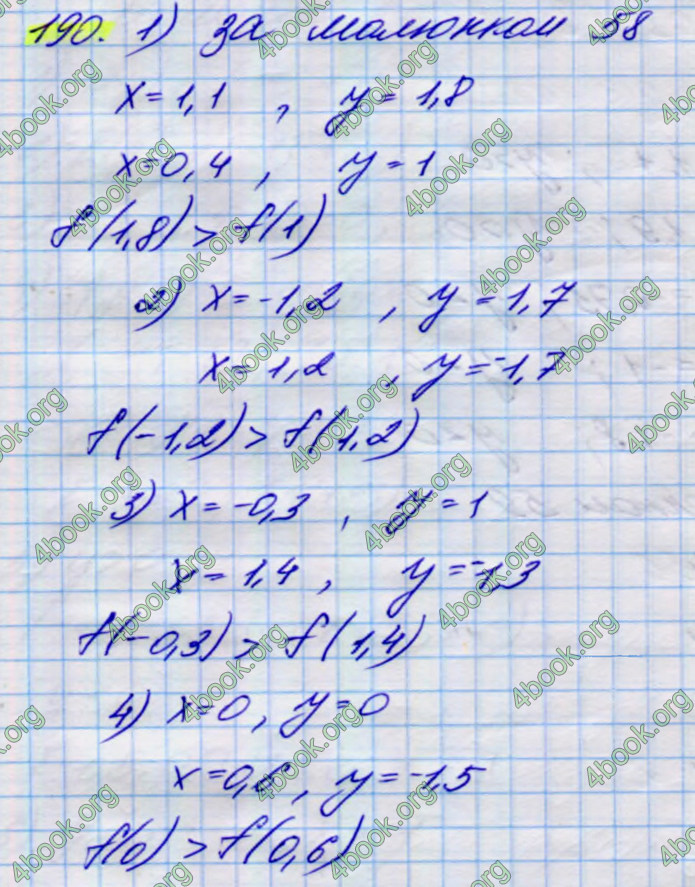 190. 1) за малюнком 38
x = 1,1 , y = 1,8
x = 0,4 , y = 1
f(1,8) > f(1)
2) x = -1,2 , y = 1,7
x = 1,2 , y = -1,7
f(-1,2) > f(1,2)
3) x = -0,3 , y = 1
x = 1,4 , y = -1,3
f(-0,3) > f(1,4)
4) x = 0 , y = 0
x = 0,6 , y = -1,5
f(0) > f(0,6)
4book.org